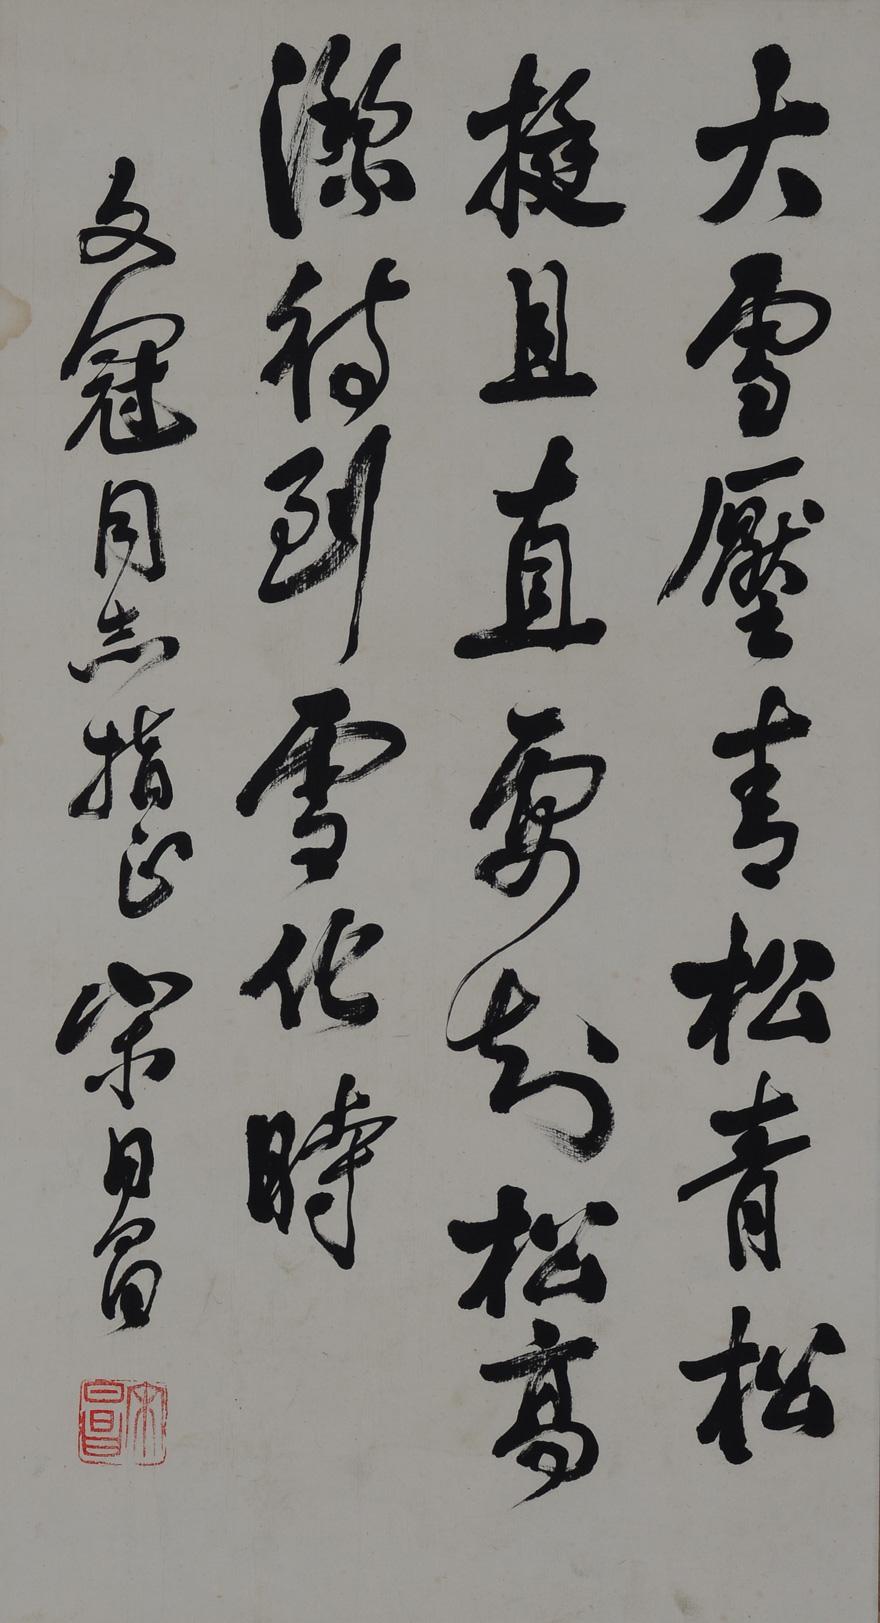 大雪壓青松青松
挺且直要知松高
潔待到雪化時
文冠同志指正 宋日昌
宋日昌